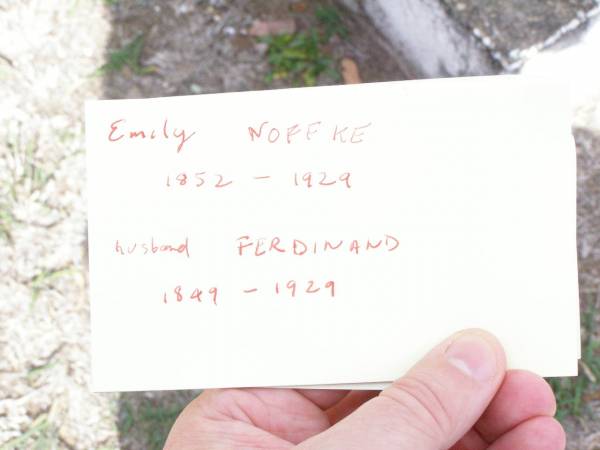 Emily NOFFKE
1852 - 1929
husband FERDINAND
1849 - 1929